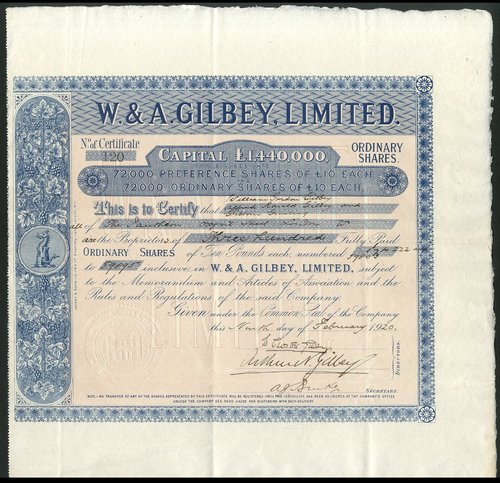 W. & A. GILBEY, LIMITED.
No. of Certificate
120
ORDINARY SHARES.
CAPITAL £1,440,000,
DIVIDED INTO
72,000 PREFERENCE SHARES OF £10 EACH
72,000 ORDINARY SHARES OF £10 EACH.
William Gordon Gilbey
This is to Certify that
all of The Pantheon Oxford Street London W
are the Proprietors of Three hundred Fully Paid
ORDINARY SHARES of Ten Pounds each, numbered
to inclusive, in W. & A. GILBEY, LIMITED, subject
to the Memorandum and Articles of Association and the
Rules and Regulations of the said Company.
Given under the Common Seal of the Company
this day of February 1920.
Arthur N. Gilbey
DIRECTORS.
SECRETARY.
NOTE:—NO TRANSFER OF ANY OF THE SHARES REPRESENTED BY THIS CERTIFICATE WILL BE REGISTERED UNTIL THIS CERTIFICATE HAS BEEN DEPOSITED AT THE COMPANY'S OFFICE
UNLESS THE COMPANY SEE GOOD CAUSE FOR DISPENSING WITH SUCH DELIVERY.